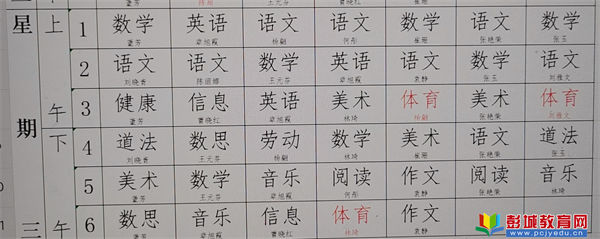 星期三
上午
1 数学 英语 语文 语文 语文 数学 语文
董芳 卓旭霞 杨颛 何彤 崔珊 张艳荣 刘雅文
2 语文 语文 数学 英语 语文 数学 数学
刘晓香 陈丽娜 王元芬 卓旭霞 袁静 张玉
3 健康 信息 英语 美术 体育 美术 体育
董芳 曹晓红 卓旭霞 林琦 杨颛 张艳荣 刘雅文
下午
4 道法 数思 劳动 数学 美术 语文 道法
刘晓香 王元芬 杨颛 林琦 崔珊 张艳荣 张玉
5 美术 数学 音乐 阅读 作文 阅读 音乐
董芳 王元芬 卓旭霞 何彤 袁静 张艳荣 林琦
6 数思 音乐 信息 体育 作文
董芳 王元芬 曹晓红 林琦 袁静
彭城教育网
www.pcjyedu.cn